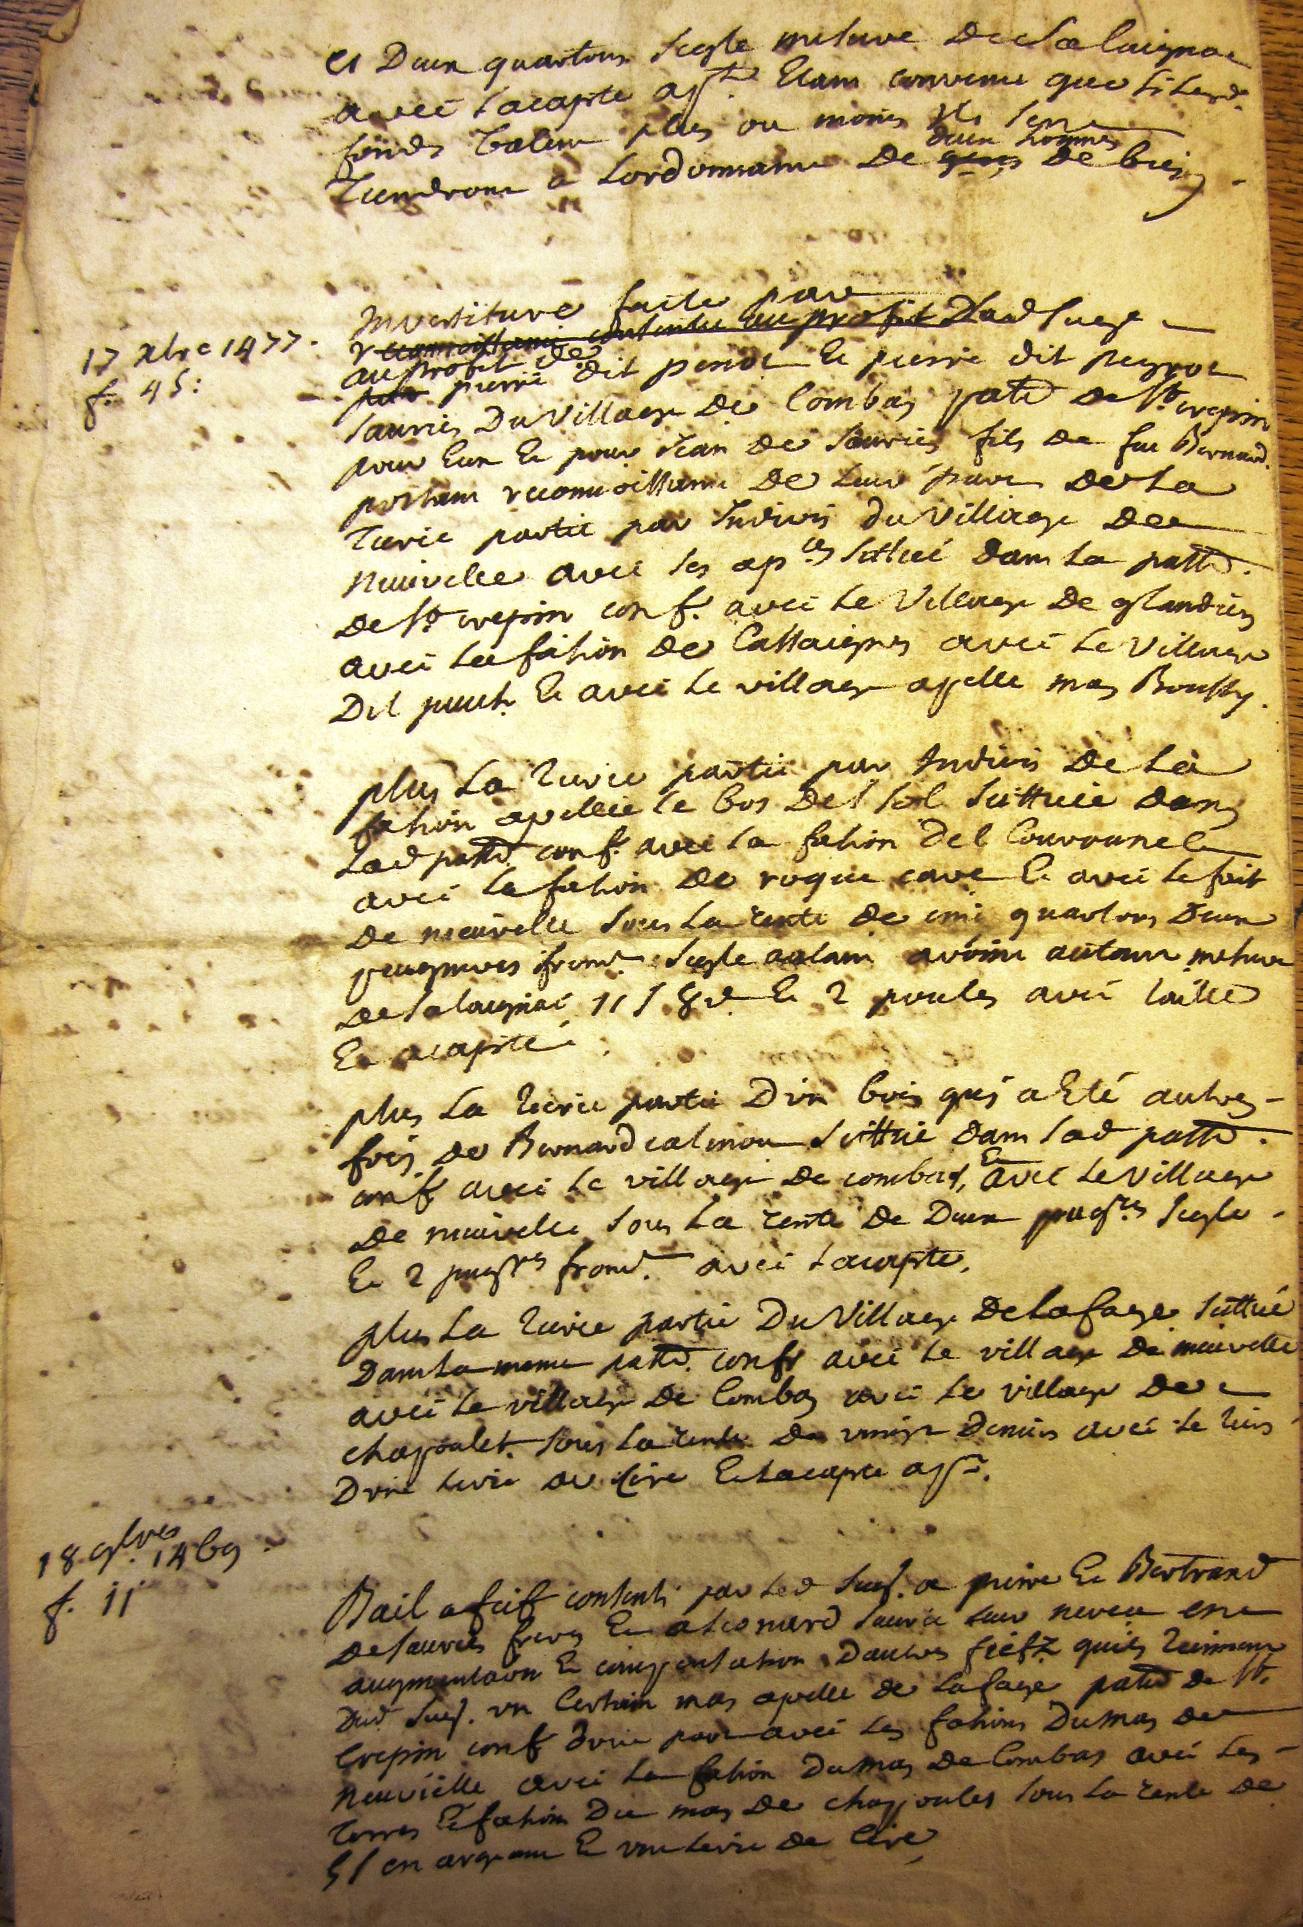 et Deux quartons seigle mesure De Salaignac
avec lacapte apt. Etant convenu que si lesd.
fonds valent plus ou moins ils sen
deux hommes
Tiendront a Lordonnance De gens De bien
17 xbre 1477.
f. 45:
Investiture faite par
reconnoissance consentie au profit Dud Suzer
au profit de
par pierre dit penot Et pierre dit peyrot
Sauries Du Village De Combas patd De St crepin
pour Eux Et pour Jean de Sauries fils De feu Bernard
portant reconnoissance De leur part De La
Tierce partie par Indivis du Village De
Neuvielle avec ses apces Sittué dans La patd.
De St crepin conf. avec Le Village De glandies
avec la faision De Cassaignes avec Le Village
Del puech Et avec Le village apellé mas Boussy.
plus La Tierce partie par Indivis De La
faision apellée le bos Del sol Sittuée dans
Lad patd. conf. avec La faision Del Couvrunel
avec la faision De roque cave Et avec Le fait
De neuvielle Sous La rente De cinq quartons Deux
pugneres fromt. Seigle avoine autant mesure
De Salaignac 11 s 8 d. Et 2 poules avec taille
Et acapte.
plus La Tierce partie D'un bois qui a Eté autres-
fois De Bernard calmon Sittué dans Lad patd.
conf avec Le village De combas, Et avec Le Village
De neuvielle Sous La rente De Deux pugres Seigle
Et 2 pugres fromt. avec Lacapte.
plus La Tierce partie Du Village De Lafage Sittué
Dans La meme patd. conf avec Le village De neuvielle
avec Le village De Combas avec Le village De
chapoulet Sous La rente De vingt Deniers avec Le tiers
D'une livre De Cire Et Lacapte apt.
18 9bres 1469.
f. 11
Bail a fief consenti par Led Suz. a pierre Et Bertrand
De Sauries freres Et a Leonard Saurie leur neveu en
augmentaon Et compensation D'autres fiefz quils tiennent
Dud Suz. un Certain mas apellé de Lafage patd De St.
Crepin conf D'une part avec Les faisions Du mas De
Neuvielle avec La faision Du mas De Combas avec Les
Terres Et faision Du mas De chapoules Sous La rente De
5 s en argent Et une Livre De Cire